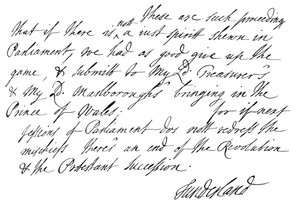 These are such proceeding
that if there is not a just spiritt shewn in
Parliament, we had as good give up the
game, & submitt to My Ld. Treasurer's
& My Ld. Marlborough's bringing in the
Prince of Wales; for if next
sessions of Parliament does not redress the
mischiefs there's an end of the Revolution
& the Protestant Succession.
Sunderland